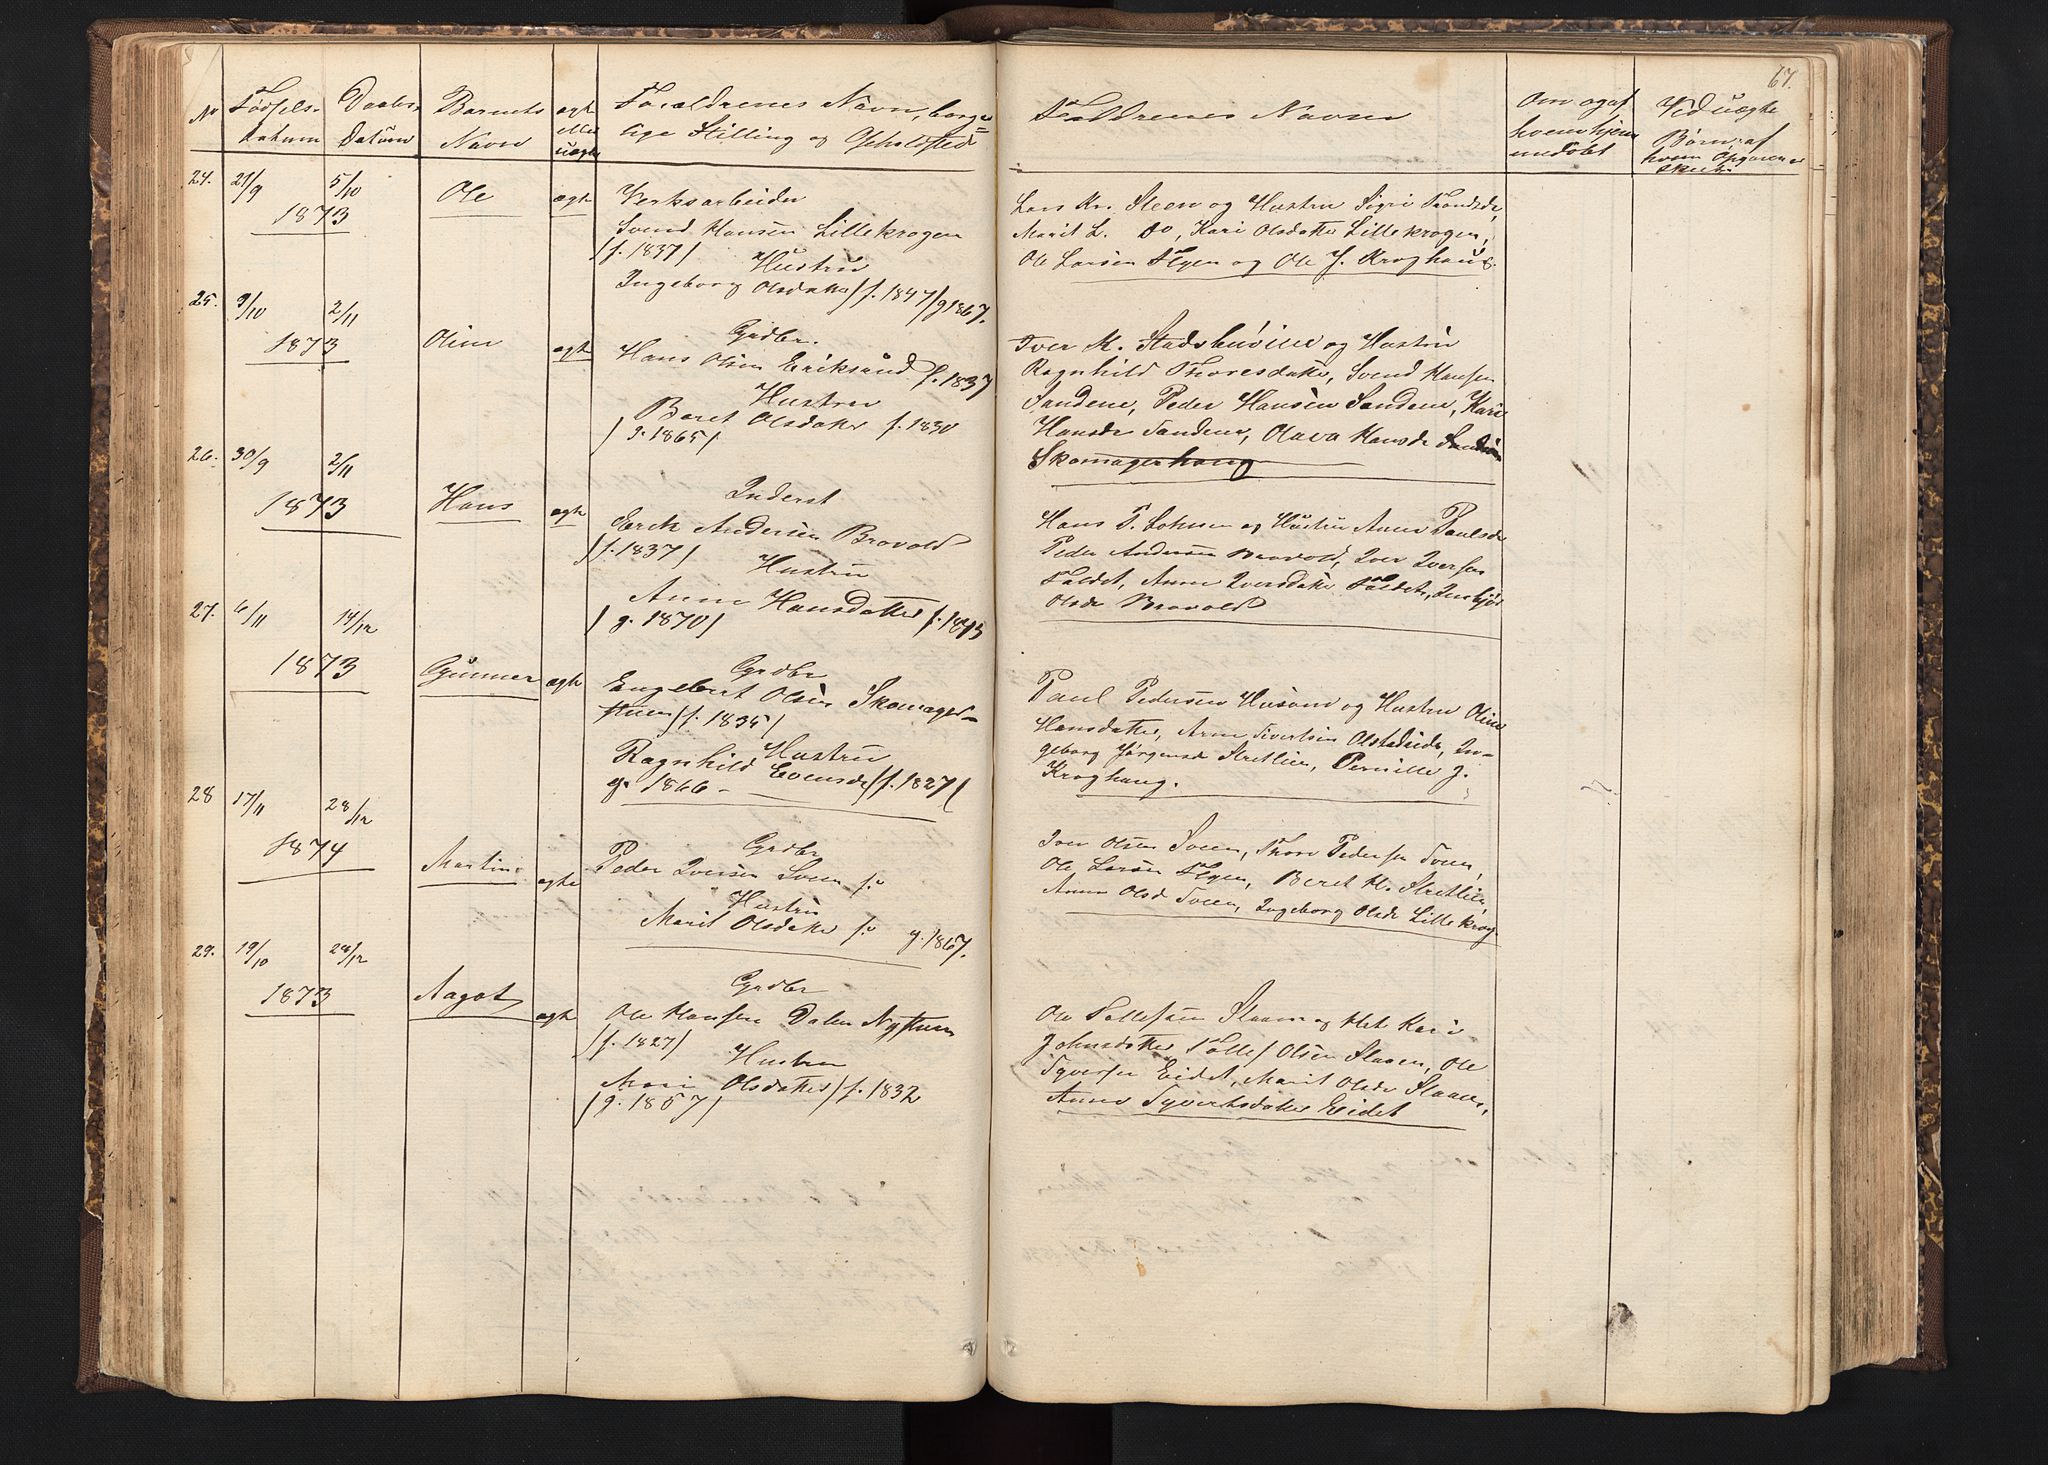 67.
No
Fødsels-
Datum
Daabs-
Datum
Barnets
Navn
ægte
eller
uægte
Forældrenes Navn, borger=
lige Stilling og Opholdsted
Faddrenes Navne
Om og af
hvem hjem
medøbt
Ved uægte
Børn af
hvem Opgaven er
skeet.
24. 21/9 5/10
1873
Ole ægte
Verksarbeider
Svend Hansen Lillekrogen
/f. 1837/
Hustru
Ingeborg Olsdatter /f. 1847/ g 1867.
Lars Kr. Steen og Hustru Sigri Trondsdr,
Marit L. Do, Kari Olsdatter Lillekrogen,
Ole Larsen Flyen og Ole J. Kroghaug.
25. 9/10 2/11
1873
Oline ægte
Grdbr.
Hans Olsen Eriksrud f. 1837
Hustru
Beret Olsdatter f. 1830
/g. 1865/
Iver K. Stadsbuøien og Hustru
Ragnhild Thoresdatter, Svend Hansen
Sandene, Peder Hansen Sandene, Kari
Hansdr Sandene, Olava Hansdr
Skomagerhaug
26. 30/9 2/11
1873
Hans ægte
Inderst
Andersen Brovold
/f. 1837/
Hustru
Anne Hansdatter
/g. 1870/
Hans T. og Hustru Anne Paulsdr
Peder Andersen Brovold, Iver Iversen
Anne Iversdatter
Olsdr Brovold
27. 6/11 14/12
1873
Gunner ægte
Grdbr
Engebret Olsen Skomager-
stuen /f. 1835/
Hustru
Ragnhild Evensdr /f. 1827/
g. 1866 -
Paul Pedersen Husom og Hustru Oline
Hansdatter, Arne Sivertsen In-
geborg Jørgensdr Stretlien, Pernille J.
Kroghaug.
28 17/11 28/12
1874
Martin ægte
Grdbr
Peder Iversen Sveen f.
Hustru
Marit Olsdatter f. g. 1867.
Iver Olsen Sveen, Thore Pedersen Sveen,
Ole Larsen Flyen, Beret H. Stretlien,
Anne Olsd Sveen, Ingeborg Olsdr Lillekrog.
29. 19/10 28/12
1873
Aagot ægte
Grdbr
Ole Hansen Dalen Nystuen
/f. 1827/
Hustru
Mari Olsdatter /f. 1832
/g. 1857/
Ole Tollefsen Slaaen og Hst Kari
Johnsdatter Tollef Olsen Slaaen, Ole
Syversen Eidet, Marit Olsdr Slaaen,
Anne Syvertsdatter Eidet